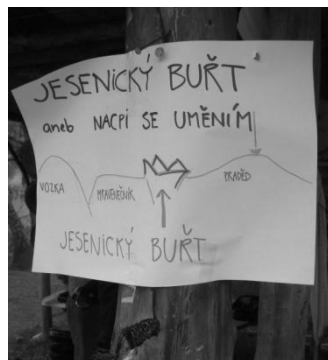 JESENICKÝ BUŘT
aneb NACPI SE UMĚNÍM
VOZKA
MRAVENEČNÍK
PRADĚD
JESENICKÝ BUŘT